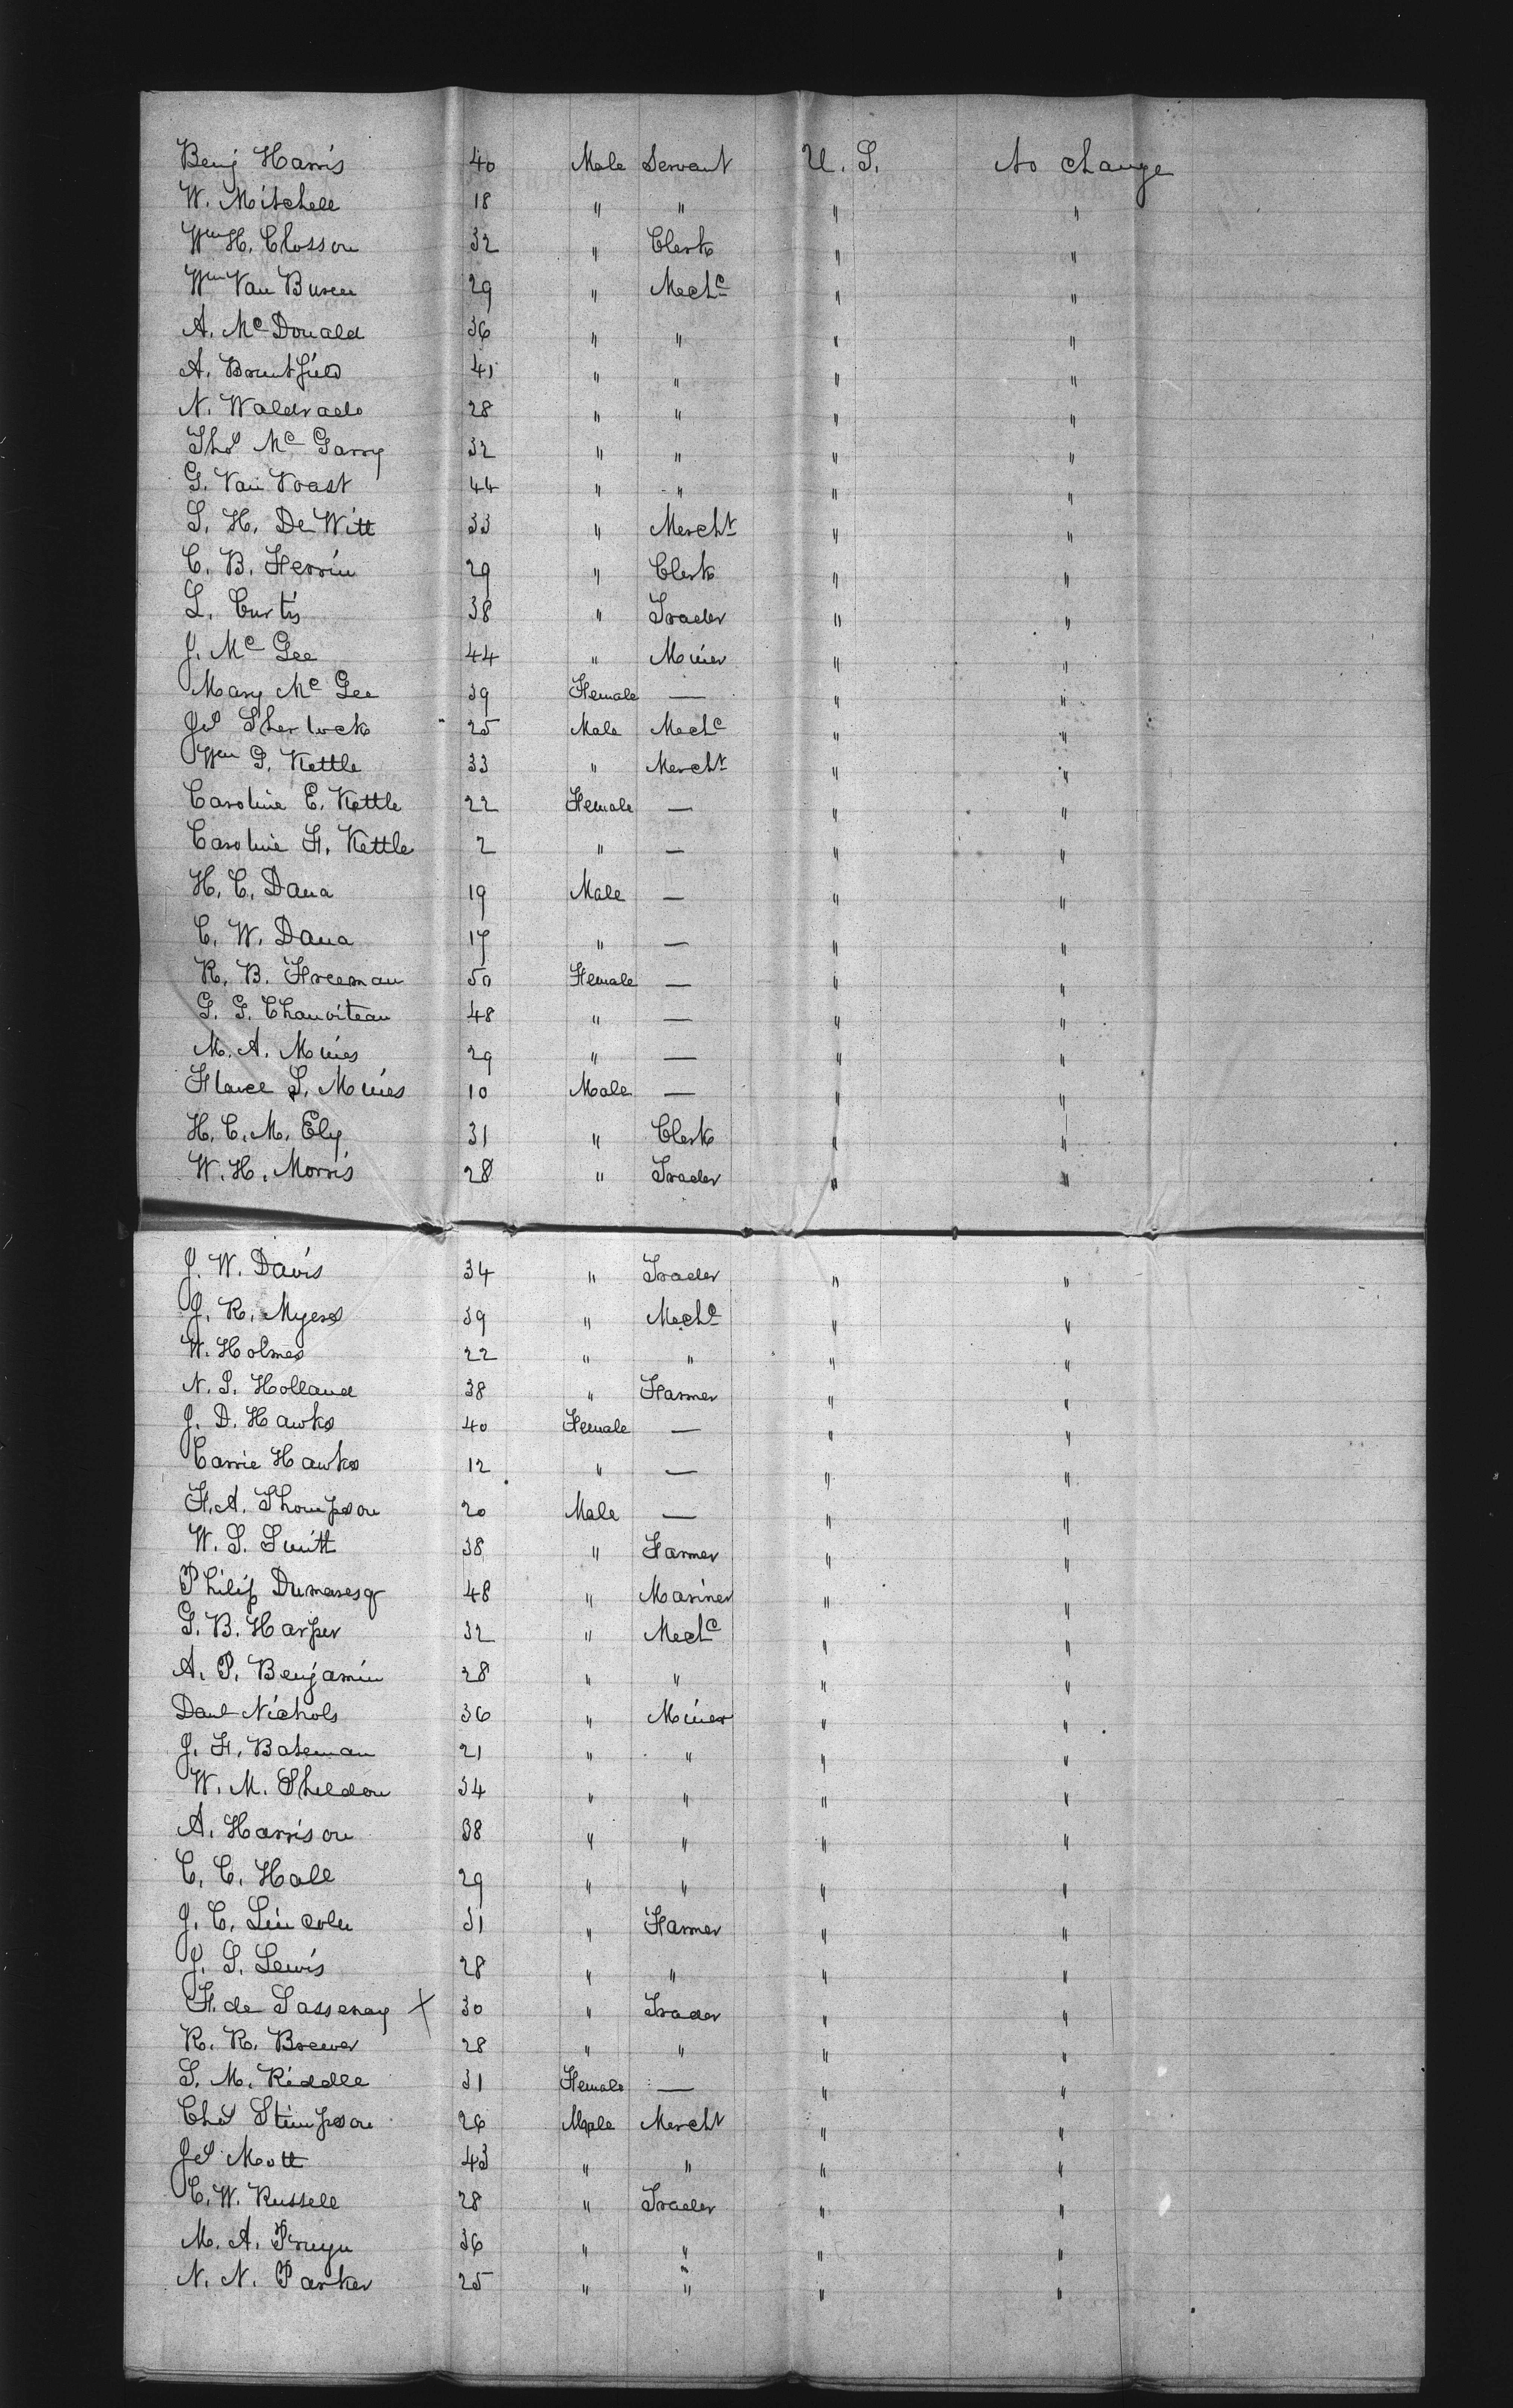 Benj Harris 40 Male Servant U. S. No change
W. Mitchell 18 " " " "
Wm H. Closson 32 " Clerk " "
Wm Van Buren 29 " Mechc " "
A. Mc Donald 36 " " " "
A. Bruntfield 41 " " " "
N. Waldrado 28 " " " "
Thos Mc Garry 32 " " " "
G. Van Voast 44 " " " "
S. H. De Witt 33 " Mercht " "
C. B. Herrin 29 " Clerk " "
L. Curtis 38 " Trader " "
J. Mc Gee 44 " Miner " "
Mary Mc Gee 39 Female — " "
Js Sherlock 25 Male Mechc " "
Wm G. Kettle 33 " Mercht " "
Caroline E. Kettle 22 Female — " "
Caroline F. Kettle 2 " — " "
H. C. Dana 19 Male — " "
C. W. Dana 17 " — " "
R. B. Freeman 50 Female — " "
G. G. Chauviteau 48 " — " "
M. A. Mines 29 " — " "
S. Mines 10 Male — " "
H. C. M. Ely 31 " Clerk " "
W. H. Morris 28 " Trader " "
J. W. Davis 34 " Trader " "
J. R. Myers 39 " Mechc " "
W. Holmes 22 " " " "
N. S. Holland 38 " Farmer " "
J. D. Hawks 40 Female — " "
Carrie Hawks 12 " — " "
F. A. Thompson 20 Male — " "
W. S. Smith 38 " Farmer " "
Philip Dumaresq 48 " Mariner " "
G. B. Harper 32 " Mechc " "
A. P. Benjamin 28 " " " "
Danl Nichols 36 " Miner " "
J. F. Bateman 21 " " " "
W. M. Sheldon 34 " " " "
A. Harrison 38 " " " "
C. C. Hall 29 " " " "
J. C. Lincoln 31 " Farmer " "
J. S. Lewis 28 " " " "
F. de Sassenay X 30 " Trader " "
R. R. Brewer 28 " " " "
S. M. Riddle 31 Female — " "
Chs Stimpson 26 Male Mercht " "
Js Mott 43 " " " "
C. W. Russell 28 " Trader " "
M. A. Pruyn 36 " " " "
N. N. Parker 25 " " " "